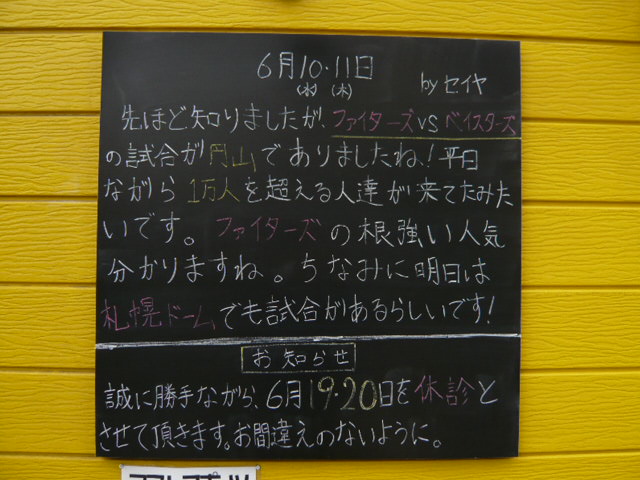 6月10・11日
(水) (木)
byセイヤ
先ほど知りましたが、ファイターズvsベイスターズ
の試合が円山でありましたね!平日
ながら1万人を超える人達が来てたみた
いです。ファイターズの根強い人気
分かりますね。ちなみに明日は
札幌ドームでも試合があるらしいです!
お知らせ
誠に勝手ながら、6月19・20日を休診と
させて頂きます。お間違えのないように。